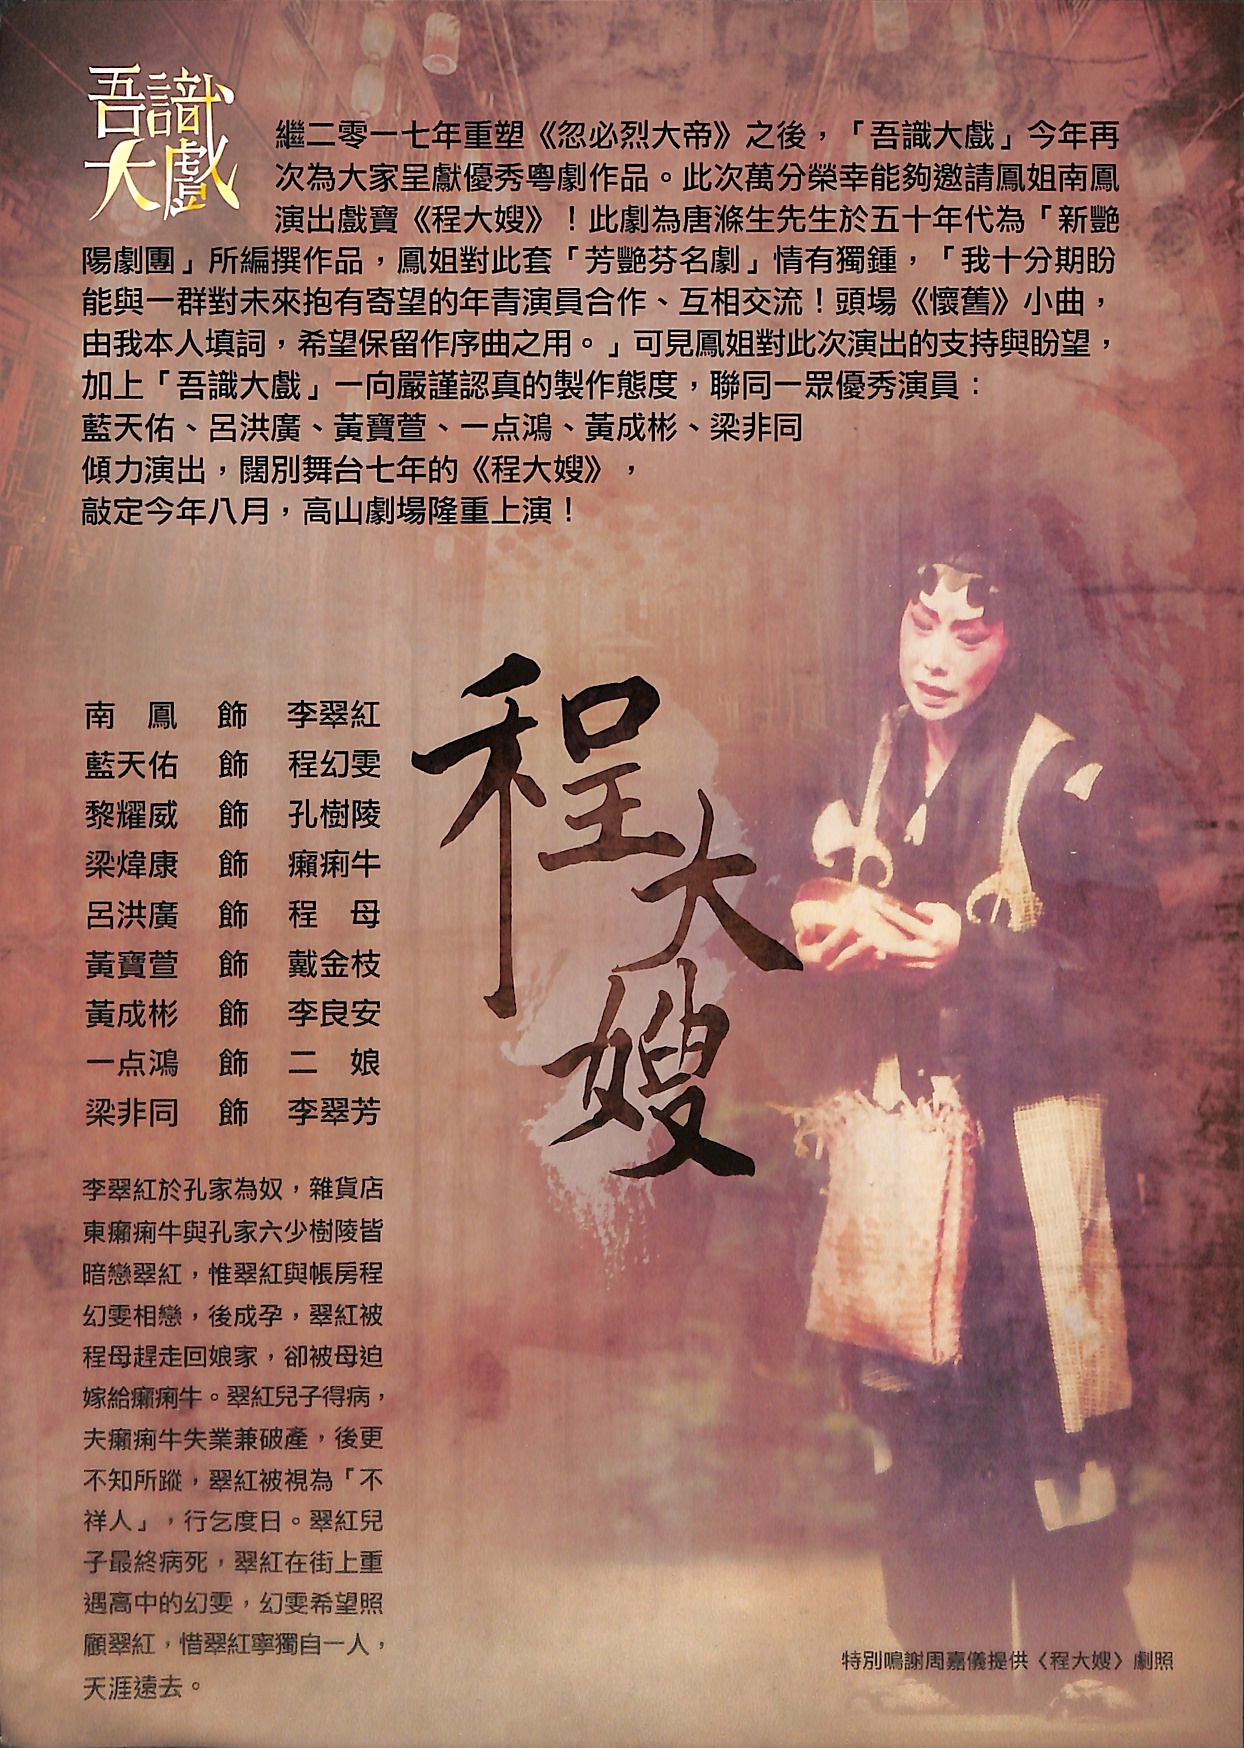 吾識
大戲
繼二零一七年重塑《忽必烈大帝》之後，「吾識大戲」今年再
次為大家呈獻優秀粵劇作品。此次萬分榮幸能夠邀請鳳姐南鳳
演出戲寶《程大嫂》！此劇為唐滌生先生於五十年代為「新艷
陽劇團」所編撰作品，鳳姐對此套「芳艷芬名劇」情有獨鍾，「我十分期盼
能與一群對未來抱有寄望的年青演員合作、互相交流！頭場《懷舊》小曲，
由我本人填詞，希望保留作序曲之用。」可見鳳姐對此次演出的支持與盼望，
加上「吾識大戲」一向嚴謹認真的製作態度，聯同一眾優秀演員：
藍天佑、呂洪廣、黃寶萱、一点鴻、黃成彬、梁非同
傾力演出，闊別舞台七年的《程大嫂》，
敲定今年八月，高山劇場隆重上演！
程大嫂
南　鳳　飾　李翠紅
藍天佑　飾　程幻雯
黎耀威　飾　孔樹陵
梁煒康　飾　癩痢牛
呂洪廣　飾　程　母
黃寶萱　飾　戴金枝
黃成彬　飾　李良安
一点鴻　飾　二　娘
梁非同　飾　李翠芳
李翠紅於孔家為奴，雜貨店
東癩痢牛與孔家六少樹陵皆
暗戀翠紅，惟翠紅與帳房程
幻雯相戀，後成孕，翠紅被
程母趕走回娘家，卻被母迫
嫁給癩痢牛。翠紅兒子得病，
夫癩痢牛失業兼破產，後更
不知所蹤，翠紅被視為「不
祥人」，行乞度日。翠紅兒
子最終病死，翠紅在街上重
遇高中的幻雯，幻雯希望照
顧翠紅，惜翠紅寧獨自一人，
天涯遠去。
特別鳴謝周嘉儀提供〈程大嫂〉劇照